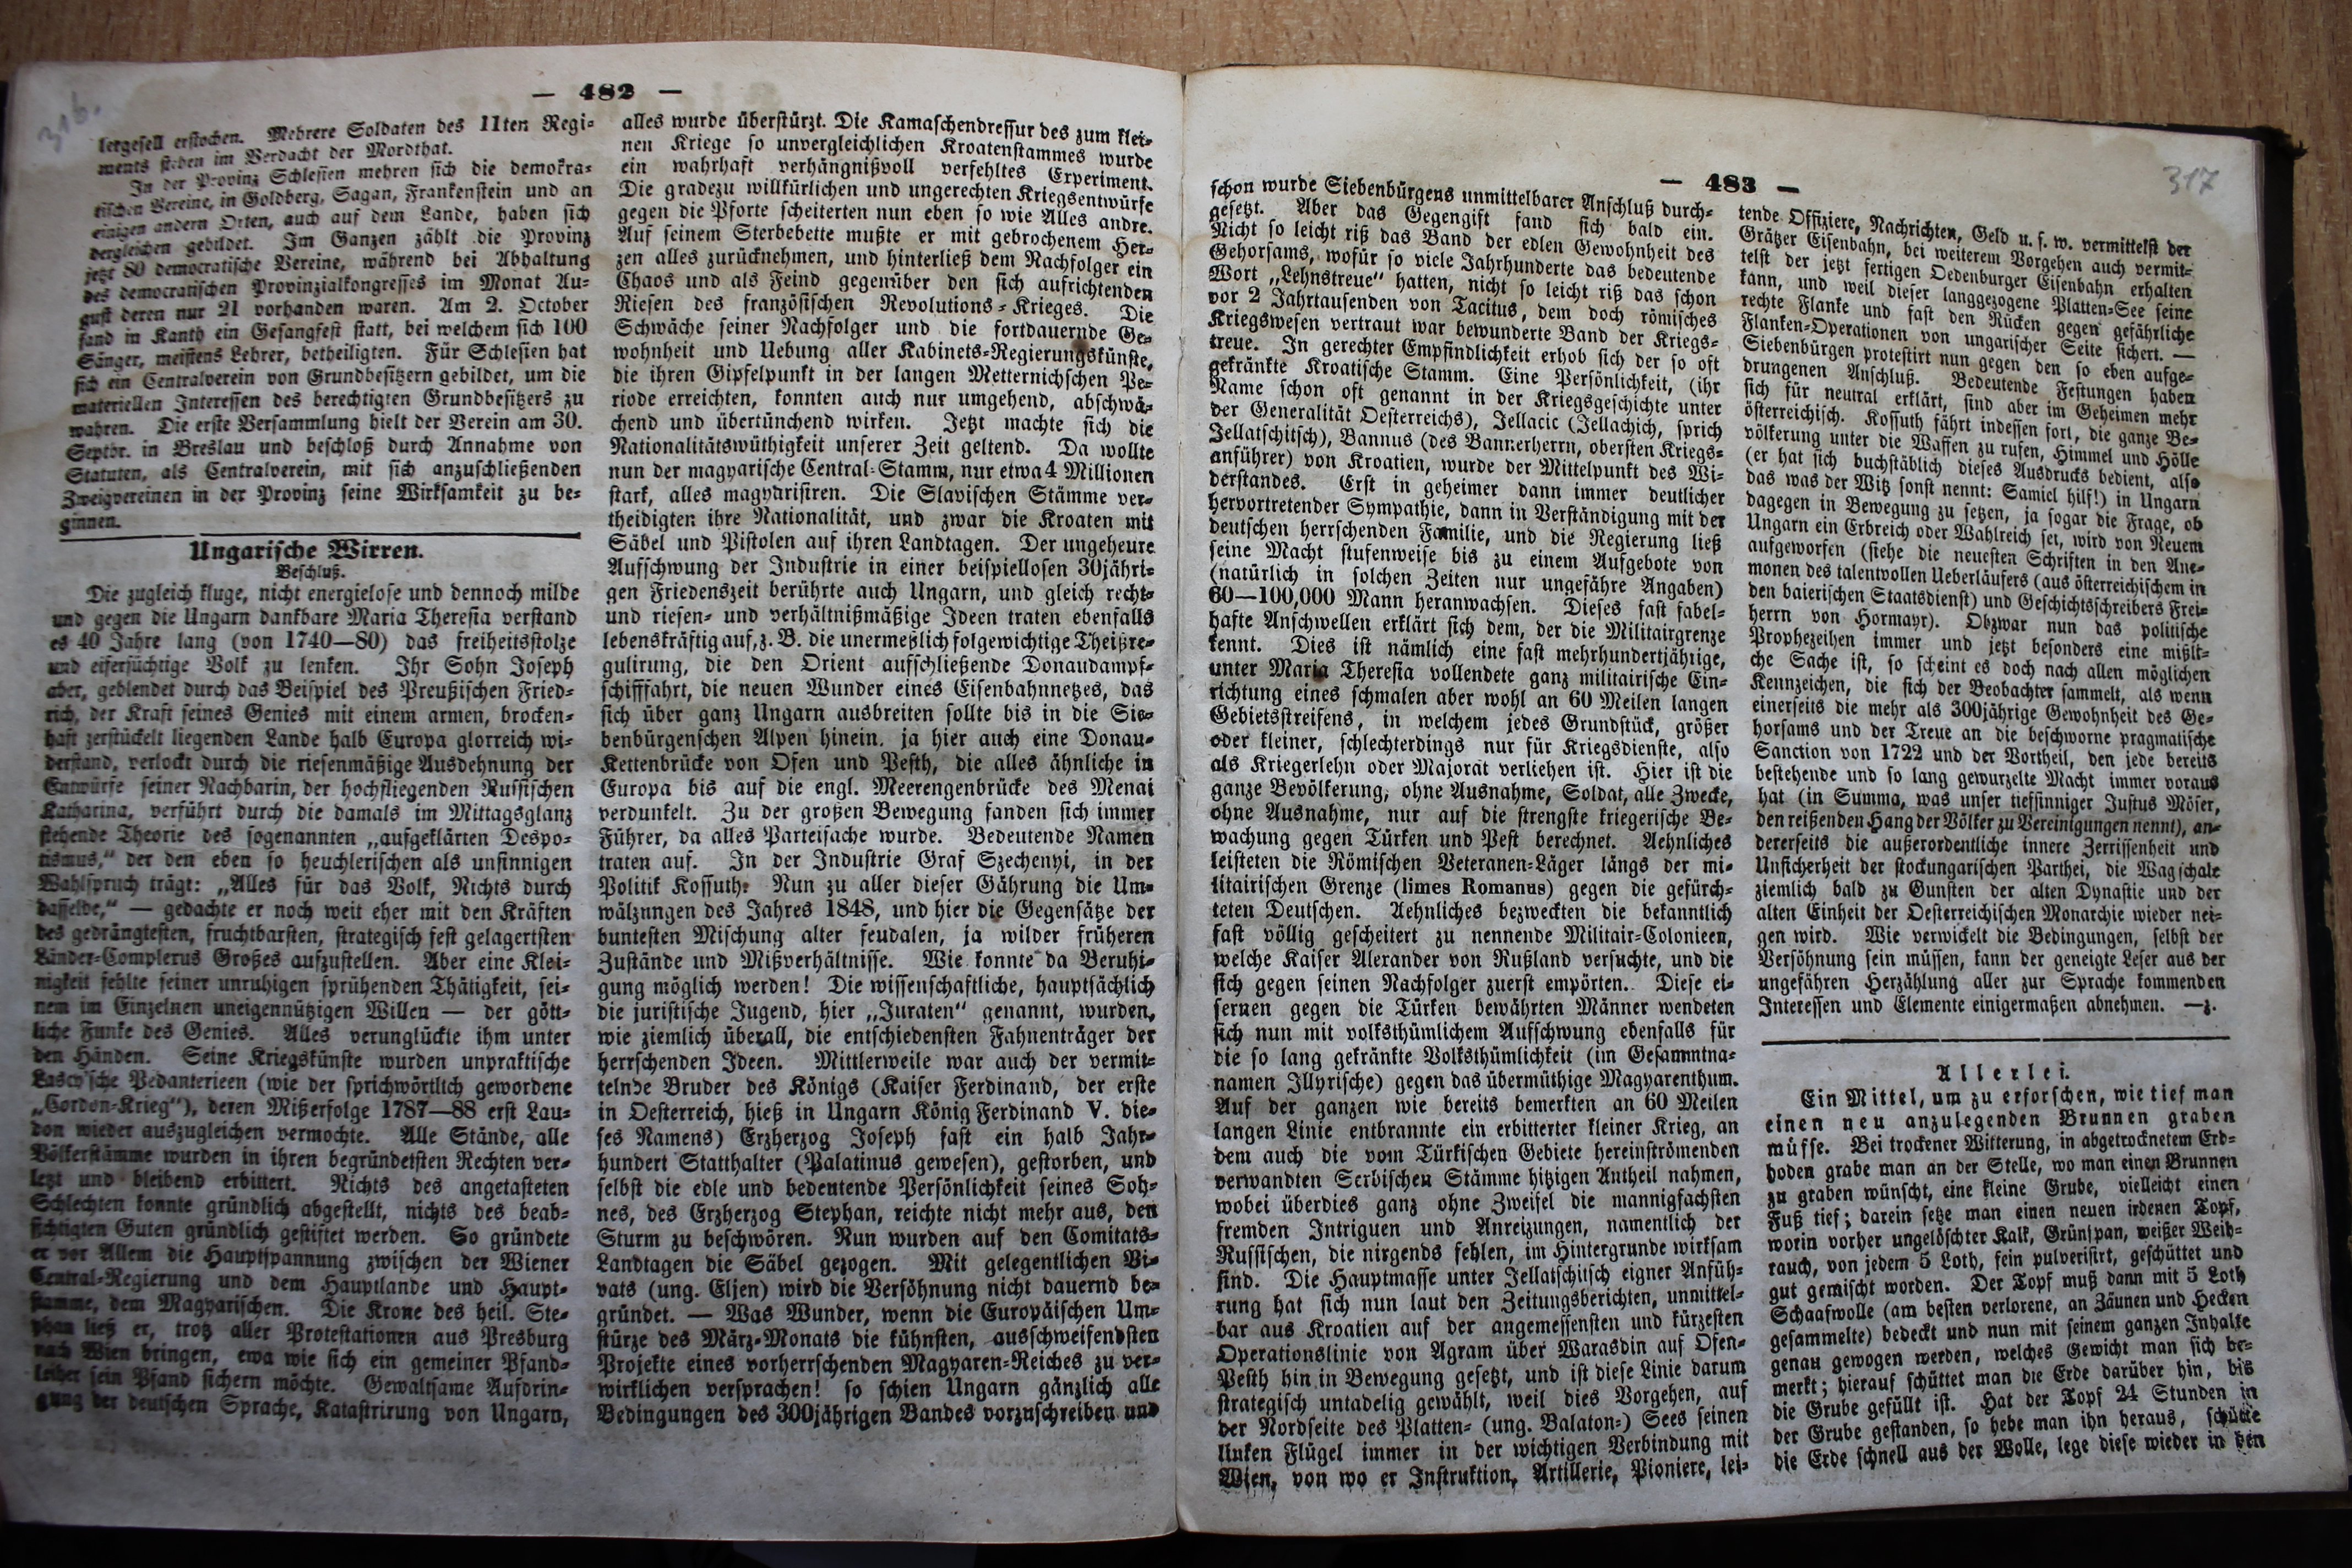 — 482 —
316.
lergesell erstochen. Mehrere Soldaten des 11ten Regi-
ments stehen im Verdacht der Mordthat.
In der Provinz Schlesien mehren sich die demokra-
tischen Vereine, in Goldberg, Sagan, Frankenstein und an
einigen andern Orten, auch auf dem Lande, haben sich
dergleichen gebildet. Im Ganzen zählt die Provinz
jetzt 80 democratische Vereine, während bei Abhaltung
des democratischen Provinzialkongresses im Monat Au-
gust deren nur 21 vorhanden waren. Am 2. October
fand in Kanth ein Gesangfest statt, bei welchem sich 100
Sänger, meistens Lehrer, betheiligten. Für Schlesien hat
sich ein Centralverein von Grundbesitzern gebildet, um die
materiellen Interessen des berechtigten Grundbesitzers zu
wahren. Die erste Versammlung hielt der Verein am 30.
Septbr. in Breslau und beschloß durch Annahme von
Statuten, als Centralverein, mit sich anzuschließenden
Zweigvereinen in der Provinz seine Wirksamkeit zu be-
ginnen.
Ungarische Wirren.
Beschluß.
Die zugleich kluge, nicht energielose und dennoch milde
und gegen die Ungarn dankbare Maria Theresia verstand
es 40 Jahre lang (von 1740—80) das freiheitsstolze
und eifersüchtige Volk zu lenken. Ihr Sohn Joseph
aber, geblendet durch das Beispiel des Preußischen Fried-
rich, der Kraft seines Genies mit einem armen, brocken-
haft zerstückelt liegenden Lande halb Europa glorreich wi-
derstand, verlockt durch die riesenmäßige Ausdehnung der
Entwürfe seiner Nachbarin, der hochfliegenden Russischen
Katharina, verführt durch die damals im Mittagsglanz
stehende Theorie des sogenannten „aufgeklärten Despo-
tismus," der den eben so heuchlerischen als unsinnigen
Wahlspruch trägt: „Alles für das Volk, Nichts durch
dasselbe," — gedachte er noch weit eher mit den Kräften
des gedrängtesten, fruchtbarsten, strategisch fest gelagertsten
Länder-Complexus Großes aufzustellen. Aber eine Klei-
nigkeit fehlte seiner unruhigen sprühenden Thätigkeit, sei-
nem im Einzelnen uneigennützigen Willen — der gött-
liche Funke des Genies. Alles verunglückte ihm unter
den Händen. Seine Kriegskünste wurden unpraktische
Lascy'sche Pedanterieen (wie der sprichwörtlich gewordene
„Cordon-Krieg"), deren Mißerfolge 1787—88 erst Lau-
don wieder auszugleichen vermochte. Alle Stände, alle
Völkerstämme wurden in ihren begründetsten Rechten ver-
letzt und bleibend erbittert. Nichts des angetasteten
Schlechten konnte gründlich abgestellt, nichts des beab-
sichtigten Guten gründlich gestiftet werden. So gründete
er vor Allem die Hauptspannung zwischen der Wiener
Central-Regierung und dem Hauptlande und Haupt-
stamme, dem Magyarischen. Die Krone des heil. Ste-
phan ließ er, trotz aller Protestationen aus Presburg
nach Wien bringen, ewa wie sich ein gemeiner Pfand-
leiher sein Pfand sichern möchte. Gewaltsame Aufdrin-
gung der deutschen Sprache, Katastrirung von Ungarn,
alles wurde überstürzt. Die Kamaschendressur des zum klei-
nen Kriege so unvergleichlichen Kroatenstammes wurde
ein wahrhaft verhängnißvoll verfehltes Experiment.
Die gradezu willkürlichen und ungerechten Kriegsentwürfe
gegen die Pforte scheiterten nun eben so wie Alles andre.
Auf seinem Sterbebette mußte er mit gebrochenem Her-
zen alles zurücknehmen, und hinterließ dem Nachfolger ein
Chaos und als Feind gegenüber den sich aufrichtenden
Riesen des französischen Revolutions-Krieges. Die
Schwäche seiner Nachfolger und die fortdauernde Ge-
wohnheit und Uebung aller Kabinets-Regierungskünste,
die ihren Gipfelpunkt in der langen Metternichschen Pe-
riode erreichten, konnten auch nur umgehend, abschwä-
chend und übertünchend wirken. Jetzt machte sich die
Nationalitätswüthigkeit unserer Zeit geltend. Da wollte
nun der magyarische Central-Stamm, nur etwa 4 Millionen
stark, alles magyarisiren. Die Slavischen Stämme ver-
theidigten ihre Nationalität, und zwar die Kroaten mit
Säbel und Pistolen auf ihren Landtagen. Der ungeheure
Aufschwung der Industrie in einer beispiellosen 30jähri-
gen Friedenszeit berührte auch Ungarn, und gleich recht-
und riesen- und verhältnißmäßige Ideen traten ebenfalls
lebenskräftig auf, z. B. die unermeßlich folgewichtige Theißre-
gulirung, die den Orient aufschließende Donaudampf-
schifffahrt, die neuen Wunder eines Eisenbahnnetzes, das
sich über ganz Ungarn ausbreiten sollte bis in die Sie-
benbürgenschen Alpen hinein, ja hier auch eine Donau-
Kettenbrücke von Ofen und Pesth, die alles ähnliche in
Europa bis auf die engl. Meerengenbrücke des Menai
verdunkelt. Zu der großen Bewegung fanden sich immer
Führer, da alles Parteisache wurde. Bedeutende Namen
traten auf. In der Industrie Graf Szechenyi, in der
Politik Kossuth. Nun zu aller dieser Gährung die Um-
wälzungen des Jahres 1848, und hier die Gegensätze der
buntesten Mischung alter feudalen, ja wilder früheren
Zustände und Mißverhältnisse. Wie konnte da Beruhi-
gung möglich werden! Die wissenschaftliche, hauptsächlich
die juristische Jugend, hier „Juraten" genannt, wurden,
wie ziemlich überall, die entschiedensten Fahnenträger der
herrschenden Ideen. Mittlerweile war auch der vermit-
telnde Bruder des Königs (Kaiser Ferdinand, der erste
in Oesterreich, hieß in Ungarn König Ferdinand V. die-
ses Namens) Erzherzog Joseph fast ein halb Jahr-
hundert Statthalter (Palatinus gewesen), gestorben, und
selbst die edle und bedeutende Persönlichkeit seines Soh-
nes, des Erzherzog Stephan, reichte nicht mehr aus, den
Sturm zu beschwören. Nun wurden auf den Comitats-
Landtagen die Säbel gezogen. Mit gelegentlichen Vi-
vats (ung. Eljen) wird die Versöhnung nicht dauernd be-
gründet. — Was Wunder, wenn die Europäischen Um-
stürze des März-Monats die kühnsten, ausschweifendsten
Projekte eines vorherrschenden Magyaren-Reiches zu ver-
wirklichen versprachen! so schien Ungarn gänzlich alle
Bedingungen des 300jährigen Bandes vorzuschreiben und
— 483 —
317
schon wurde Siebenbürgens unmittelbarer Anschluß durch-
gesetzt. Aber das Gegengift fand sich bald ein.
Nicht so leicht riß das Band der edlen Gewohnheit des
Gehorsams, wofür so viele Jahrhunderte das bedeutende
Wort „Lehnstreue" hatten, nicht so leicht riß das schon
vor 2 Jahrtausenden von Tacitus, dem doch römisches
Kriegswesen vertraut war bewunderte Band der Kriegs-
treue. In gerechter Empfindlichkeit erhob sich der so oft
gekränkte Kroatische Stamm. Eine Persönlichkeit, (ihr
Name schon oft genannt in der Kriegsgeschichte unter
der Generalität Oesterreichs), Jellacic (Jellachich, sprich
Jellatschitsch), Bannus (des Bannerherrn, obersten Kriegs-
anführer) von Kroatien, wurde der Mittelpunkt des Wi-
derstandes. Erst in geheimer dann immer deutlicher
hervortretender Sympathie, dann in Verständigung mit der
deutschen herrschenden Familie, und die Regierung ließ
seine Macht stufenweise bis zu einem Aufgebote von
(natürlich in solchen Zeiten nur ungefähre Angaben)
60—100,000 Mann heranwachsen. Dieses fast fabel-
hafte Anschwellen erklärt sich dem, der die Militairgrenze
kennt. Dies ist nämlich eine fast mehrhundertjährige,
unter Maria Theresia vollendete ganz militairische Ein-
richtung eines schmalen aber wohl an 60 Meilen langen
Gebietsstreifens, in welchem jedes Grundstück, größer
oder kleiner, schlechterdings nur für Kriegsdienste, also
als Kriegerlehn oder Majorat verliehen ist. Hier ist die
ganze Bevölkerung, ohne Ausnahme, Soldat, alle Zwecke,
ohne Ausnahme, nur auf die strengste kriegerische Be-
wachung gegen Türken und Pest berechnet. Aehnliches
leisteten die Römischen Veteranen-Läger längs der mi-
litairischen Grenze (limes Romanus) gegen die gefürch-
teten Deutschen. Aehnliches bezweckten die bekanntlich
fast völlig gescheitert zu nennende Militair-Colonieen,
welche Kaiser Alexander von Rußland versuchte, und die
sich gegen seinen Nachfolger zuerst empörten. Diese ei-
sernen gegen die Türken bewährten Männer wendeten
sich nun mit volksthümlichem Aufschwung ebenfalls für
die so lang gekränkte Volksthümlichkeit (im Gesammtna-
namen Illyrische) gegen das übermüthige Magyarenthum.
Auf der ganzen wie bereits bemerkten an 60 Meilen
langen Linie entbrannte ein erbitterter kleiner Krieg, an
dem auch die vom Türkischen Gebiete hereinströmenden
verwandten Serbischen Stämme hitzigen Antheil nahmen,
wobei überdies ganz ohne Zweifel die mannigfachsten
fremden Intriguen und Anreizungen, namentlich der
Russischen, die nirgends fehlen, im Hintergrunde wirksam
sind. Die Hauptmasse unter Jellatschitsch eigner Anfüh-
rung hat sich nun laut den Zeitungsberichten, unmittel-
bar aus Kroatien auf der angemessensten und kürzesten
Operationslinie von Agram über Warasdin auf Ofen-
Pesth hin in Bewegung gesetzt, und ist diese Linie darum
strategisch untadelig gewählt, weil dies Vorgehen, auf
der Nordseite des Platten- (ung. Balaton-) Sees seinen
linken Flügel immer in der wichtigen Verbindung mit
Wien, von wo er Instruktion, Artillerie, Pioniere, lei-
tende Offiziere, Nachrichten, Geld u. s. w. vermittelst der
Grätzer Eisenbahn, bei weiterem Vorgehen auch vermit-
telst der jetzt fertigen Oedenburger Eisenbahn erhalten
kann, und weil dieser langgezogene Platten-See seine
rechte Flanke und fast den Rücken gegen gefährliche
Flanken-Operationen von ungarischer Seite sichert. —
Siebenbürgen protestirt nun gegen den so eben aufge-
drungenen Anschluß. Bedeutende Festungen haben
sich für neutral erklärt, sind aber im Geheimen mehr
österreichisch. Kossuth fährt indessen fort, die ganze Be-
völkerung unter die Waffen zu rufen, Himmel und Hölle
(er hat sich buchstäblich dieses Ausdrucks bedient, also
das was der Witz sonst nennt: Samiel hilf!) in Ungarn
dagegen in Bewegung zu setzen, ja sogar die Frage, ob
Ungarn ein Erbreich oder Wahlreich sei, wird von Neuem
aufgeworfen (siehe die neuesten Schriften in den Ane-
monen des talentvollen Ueberläufers (aus österreichischem in
den baierischen Staatsdienst) und Geschichtsschreibers Frei-
herrn von Hormayr). Obzwar nun das politische
Prophezeihen immer und jetzt besonders eine mißli-
che Sache ist, so scheint es doch nach allen möglichen
Kennzeichen, die sich der Beobachter sammelt, als wenn
einerseits die mehr als 300jährige Gewohnheit des Ge-
horsams und der Treue an die beschworne pragmatische
Sanction von 1722 und der Vortheil, den jede bereits
bestehende und so lang gewurzelte Macht immer voraus
hat (in Summa, was unser tiefsinniger Justus Möser,
den reißenden Hang der Völker zu Vereinigungen nennt), an-
dererseits die außerordentliche innere Zerrissenheit und
Unsicherheit der stockungarischen Parthei, die Wagschale
ziemlich bald zu Gunsten der alten Dynastie und der
alten Einheit der Oesterreichischen Monarchie wieder nei-
gen wird. Wie verwickelt die Bedingungen, selbst der
Versöhnung sein müssen, kann der geneigte Leser aus der
ungefähren Herzählung aller zur Sprache kommenden
Interessen und Elemente einigermaßen abnehmen. —z.
Allerlei.
Ein Mittel, um zu erforschen, wie tief man
einen neu anzulegenden Brunnen graben
müsse. Bei trockener Witterung, in abgetrocknetem Erd-
boden grabe man an der Stelle, wo man einen Brunnen
zu graben wünscht, eine kleine Grube, vielleicht einen
Fuß tief; darein setze man einen neuen irdenen Topf,
worin vorher ungelöschter Kalk, Grünspan, weißer Weih-
rauch, von jedem 5 Loth, fein pulverisirt, geschüttet und
gut gemischt worden. Der Topf muß dann mit 5 Loth
Schaafwolle (am besten verlorene, an Zäunen und Hecken
gesammelte) bedeckt und nun mit seinem ganzen Inhalte
genau gewogen werden, welches Gewicht man sich be-
merkt; hierauf schüttet man die Erde darüber hin, bis
die Grube gefüllt ist. Hat der Topf 24 Stunden in
der Grube gestanden, so hebe man ihn heraus, schütte
die Erde schnell aus der Wolle, lege diese wieder in den